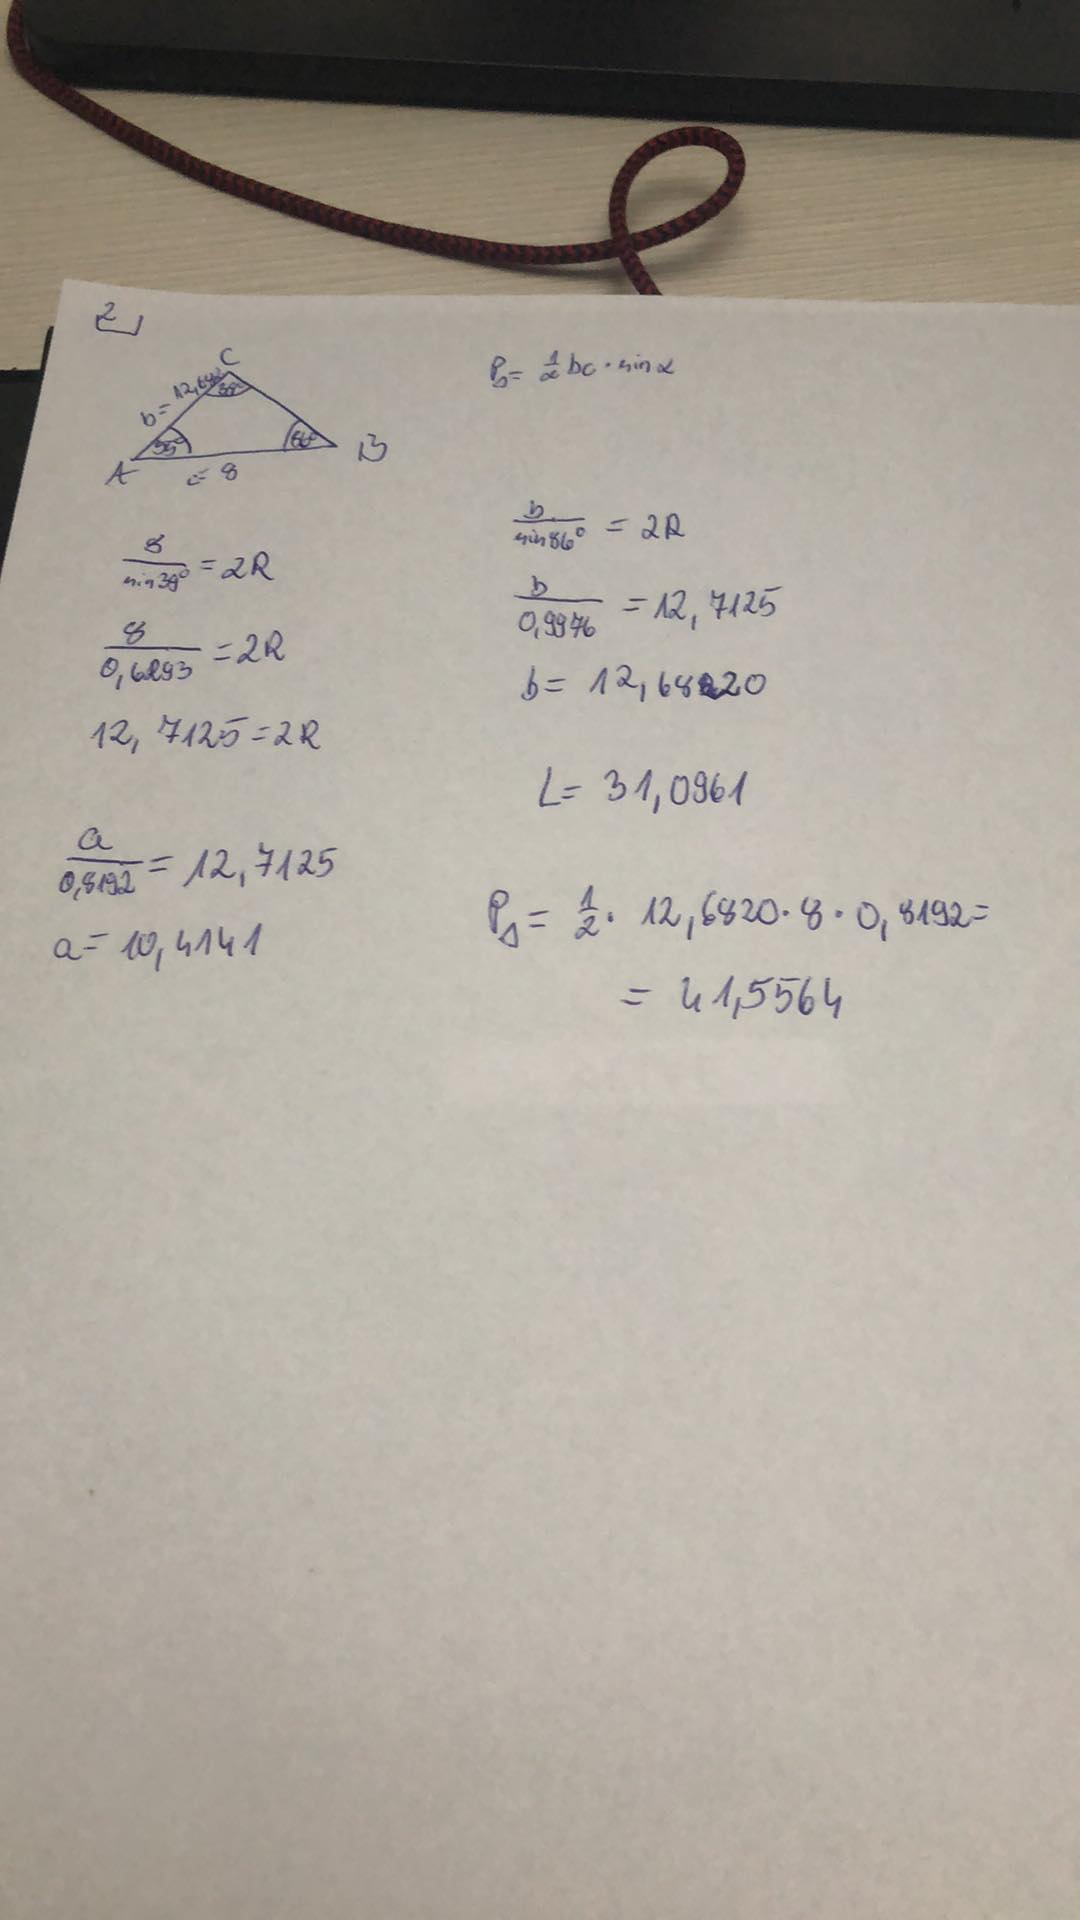 2
C
b= 12,682
39°
55°
86°
A
B
c= 8
8/sin39° = 2R
8/0,6293 = 2R
12,7125=2R
a/0,8192 = 12,7125
a= 10,4141
P△= 1/2 bc·sinα
b/sin86° = 2R
b/0,9976 = 12,7125
b= 12,6820
L= 31,0961
P△= 1/2 · 12,6820·8·0,8192=
= 41,5564